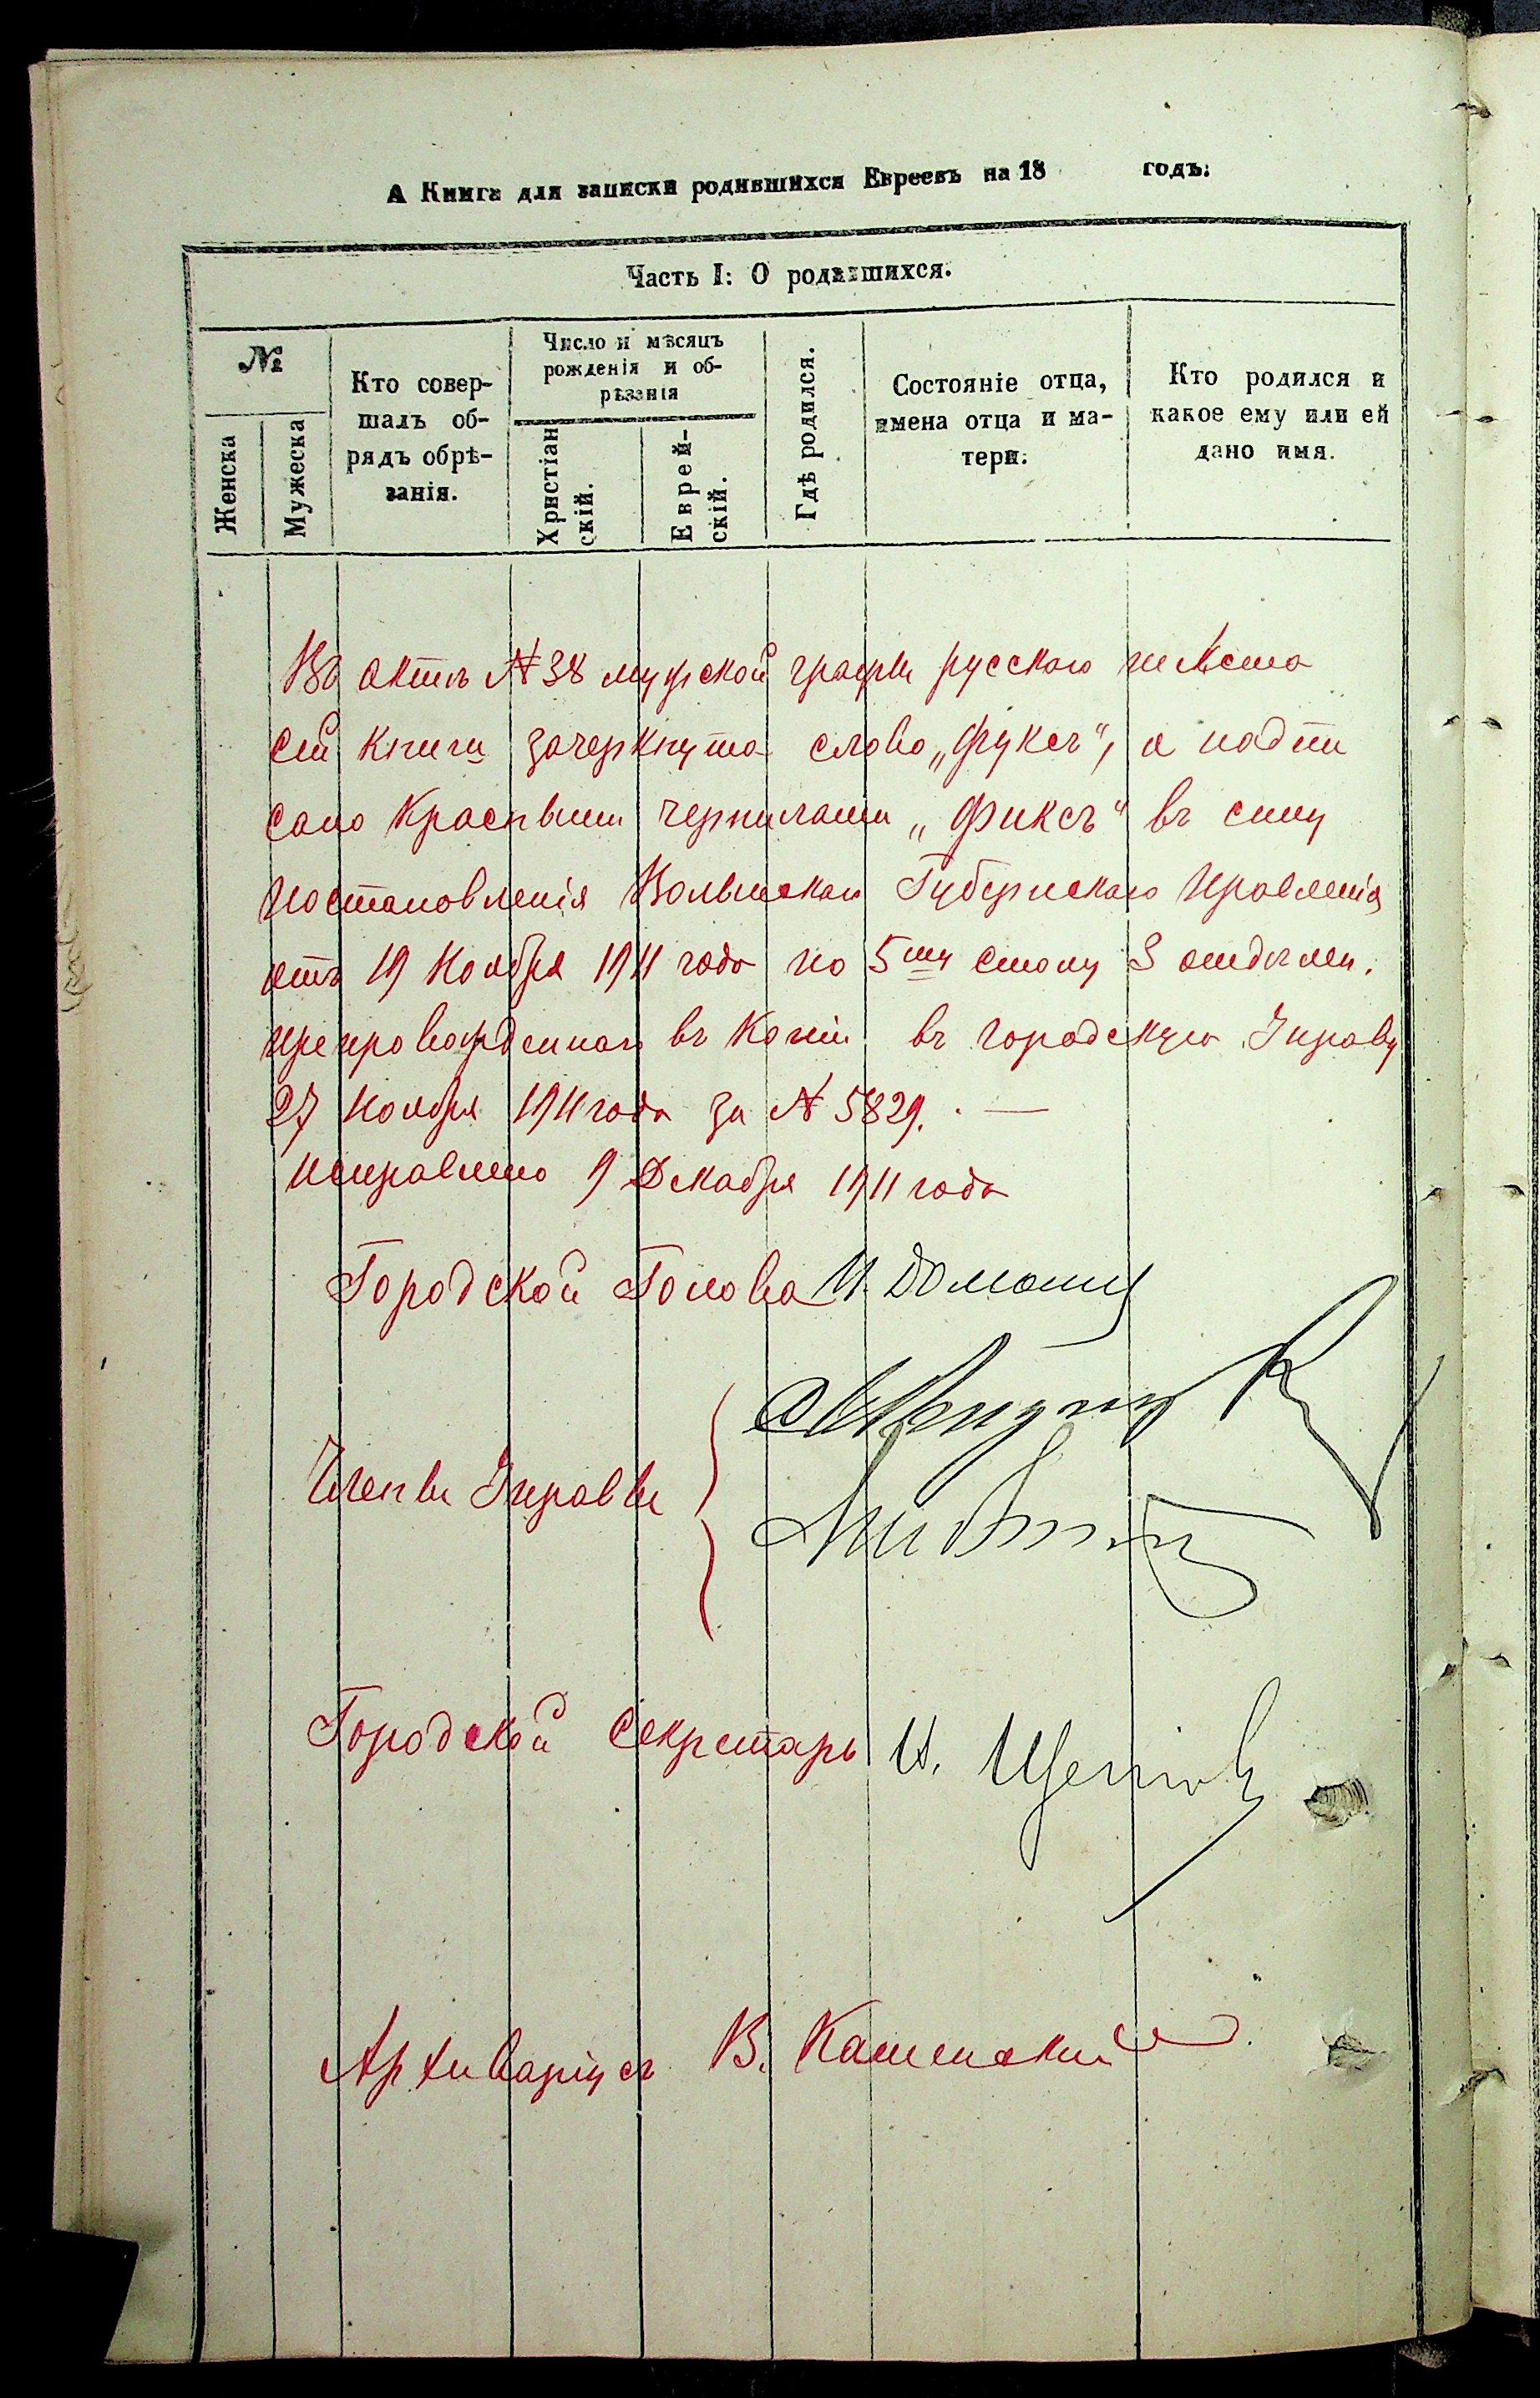 А Книга для записки родившихся Евреевъ на 18 годъ.
Часть I: О родившихся.
№
Женска
Мужеска
Кто совер-
шалъ об-
рядъ обрѣ-
занія.
Число и мѣсяцъ
рожденія и об-
рѣзанія
Христіан
скій.
Еврей-
скій.
Гдѣ родился.
Состояніе отца,
имена отца и ма-
тери.
Кто родился и
какое ему или ей
дано имя.
Въ актѣ № 38 мужской графы русскаго текста
сей книги зачеркнуто слово „Фуксъ", а надпи
сано красными чернилами „Фиксъ" въ силу
постановленія Волынскаго Губернскаго Правленія
отъ 19 Ноября 1911 года по 5му столу 3 отдѣлен.
препровожденнаго въ копіи въ Городскую Управу
27 Ноября 1911 года за № 5829. —
Исправлено 9 Декабря 1911 года
Городской Голова И.
Члены Управы
Городской Секретарь И.
Архиваріусъ В. Каминскій